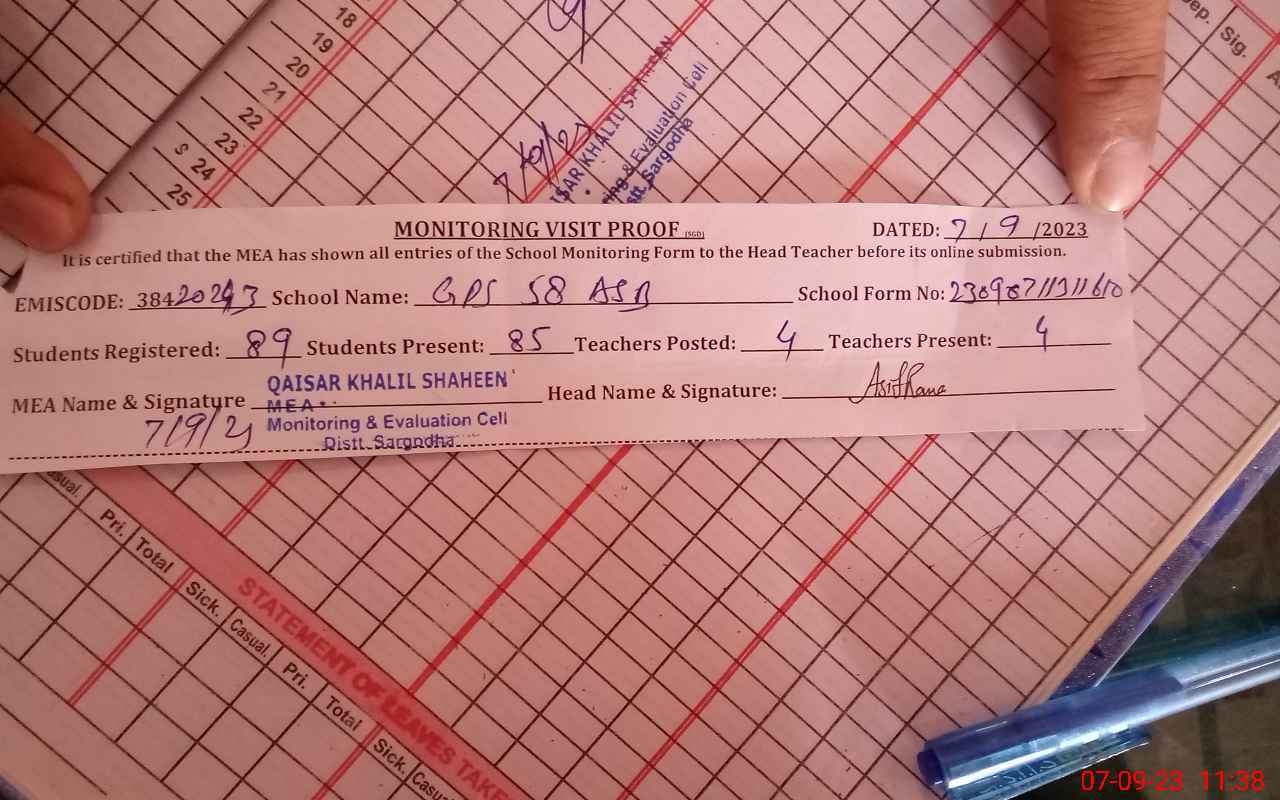 18
19
20
21
22
23
S 24
25
Dep. Sig.
7/09/23
KHALIL SHAHEEN
& Evaluation Cell
Sargodha
MONITORING VISIT PROOF (SGD) DATED: 7/9/2023
It is certified that the MEA has shown all entries of the School Monitoring Form to the Head Teacher before its online submission.
EMISCODE: 384 School Name: GPS 58 ASB School Form No:
Students Registered: 89 Students Present: 85 Teachers Posted: 4 Teachers Present: 4
MEA Name & Signature QAISAR KHALIL SHAHEEN Head Name & Signature: Asif Rana
MEA
7/9/23 Monitoring & Evaluation Cell
Distt. Sargodha
Pri. Total Sick. Casual. Pri. Total Sick.
STATEMENT OF LEAVES TAKE
07-09-23 11:38